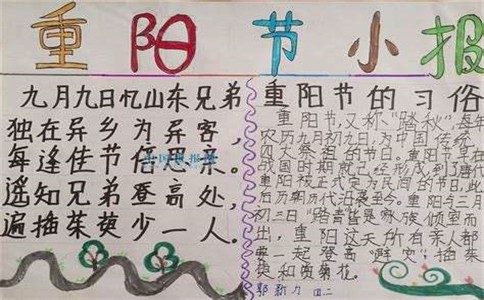 重阳节小报
九月九日忆山东兄弟
独在异乡为异客，
每逢佳节倍思亲。
遥知兄弟登高处，
遍插茱萸少一人。
重阳节的习俗
重阳节，又称“踏秋”，每年
农历九月初九日，为中国传统
四大祭祖的节日。重阳节早在
战国时期就已经形成，到了唐代
重阳被正式定为民间的节日，此
后历朝历代沿袭至今。重阳与三月
初三日“踏春”皆是家族倾室而
出，重阳这天所有亲人都
要一起登高“避灾”，插茱
萸和赏菊花。
四二